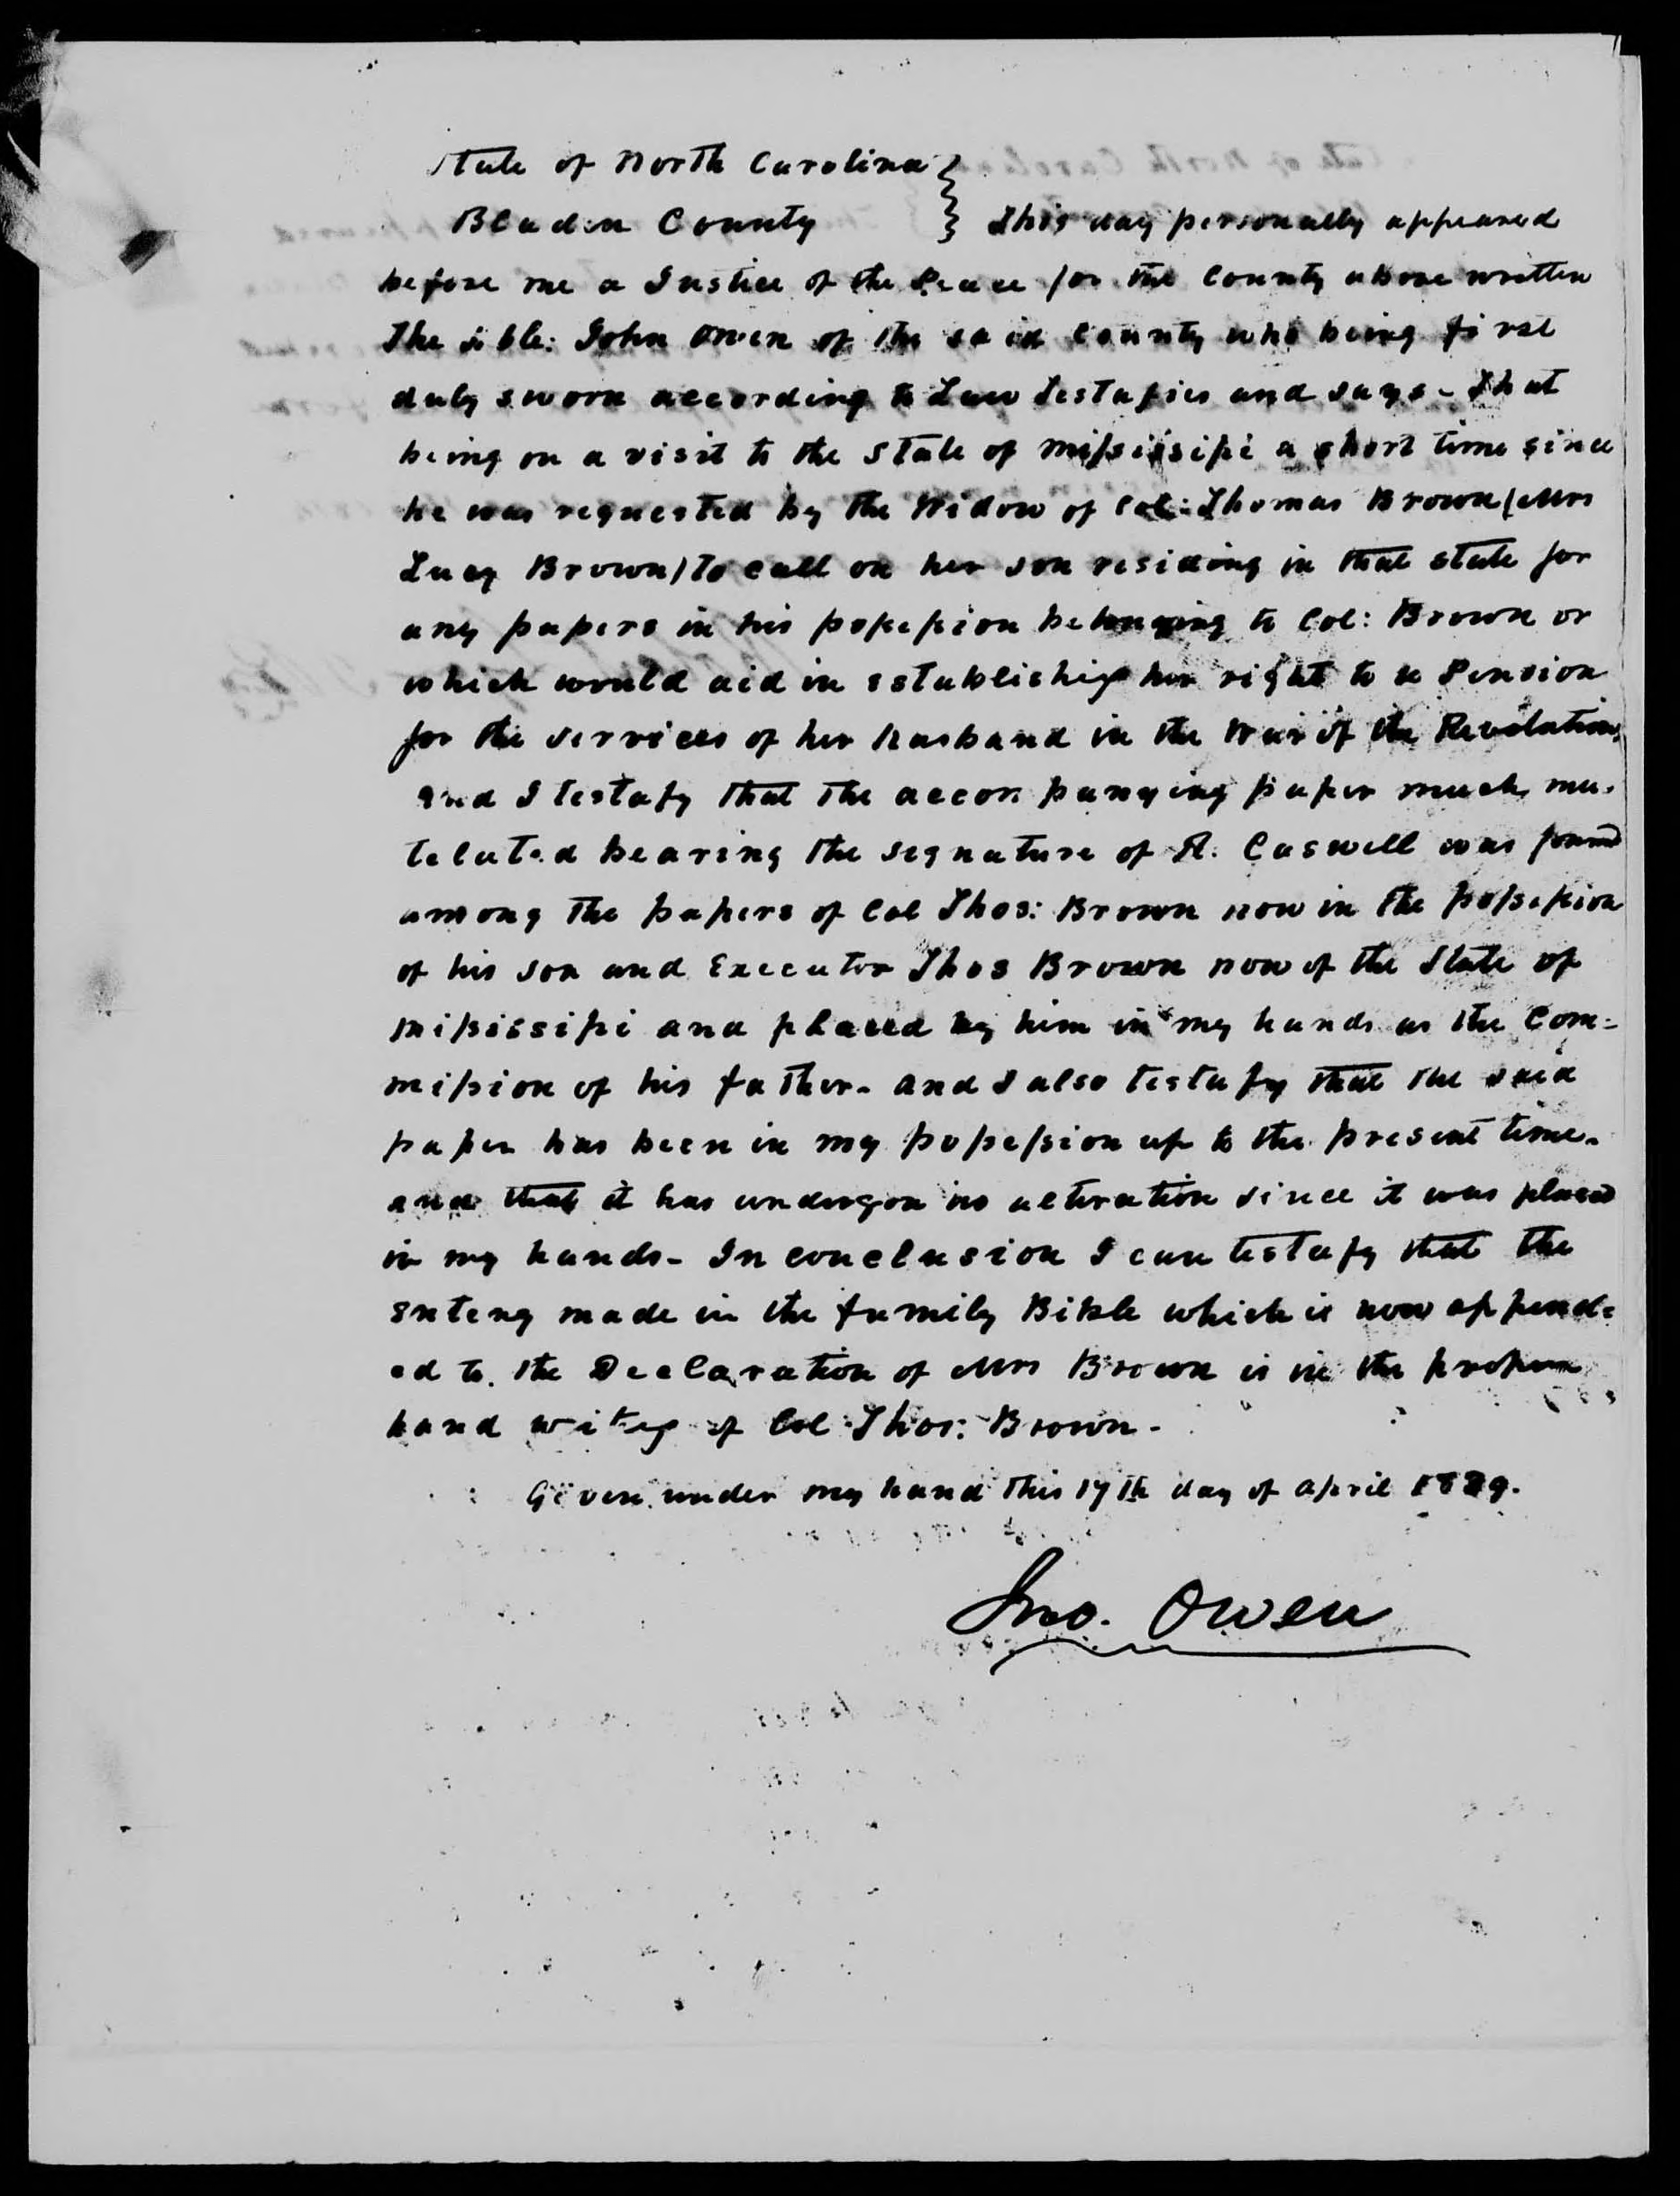 State of North Carolina }
Bladen County } This day personally appeared
before me a Justice of the Peace for the County above written
The John Owen of the said County who being first
duly sworn according to Law Testafies and says - That
being on a visit to the State of Missisipi a short time since
he was requested by the Widow of Col: Thomas Brown (Mrs
Lucy Brown) to call on her son residing in that state for
any papers in his possession belonging to Col: Brown or
which would aid in establishig her right to a Pension
for the services of her husband in the War of the Revolution,
and I testafy that the accompanying paper much mu-
telated bearing the segnature of R. Caswell was found
among the papers of Col Thos: Brown now in the possession
of his son and Executor Thos Brown now of the State of
Missisipi and placed by him in my hands as the Com=
mission of his father - and I also testafy that the said
paper has been in my possession up to the present time -
and that it has undergon no alteration since it was placed
in my hands - In conclusion I can testafy that the
made in the family Bible which is now append=
ed to the Declaration of Mrs Brown is in the proper
hand of Col Thos: Brown -
Given under my hand this 17th day of April 1839.
Jno. Owen